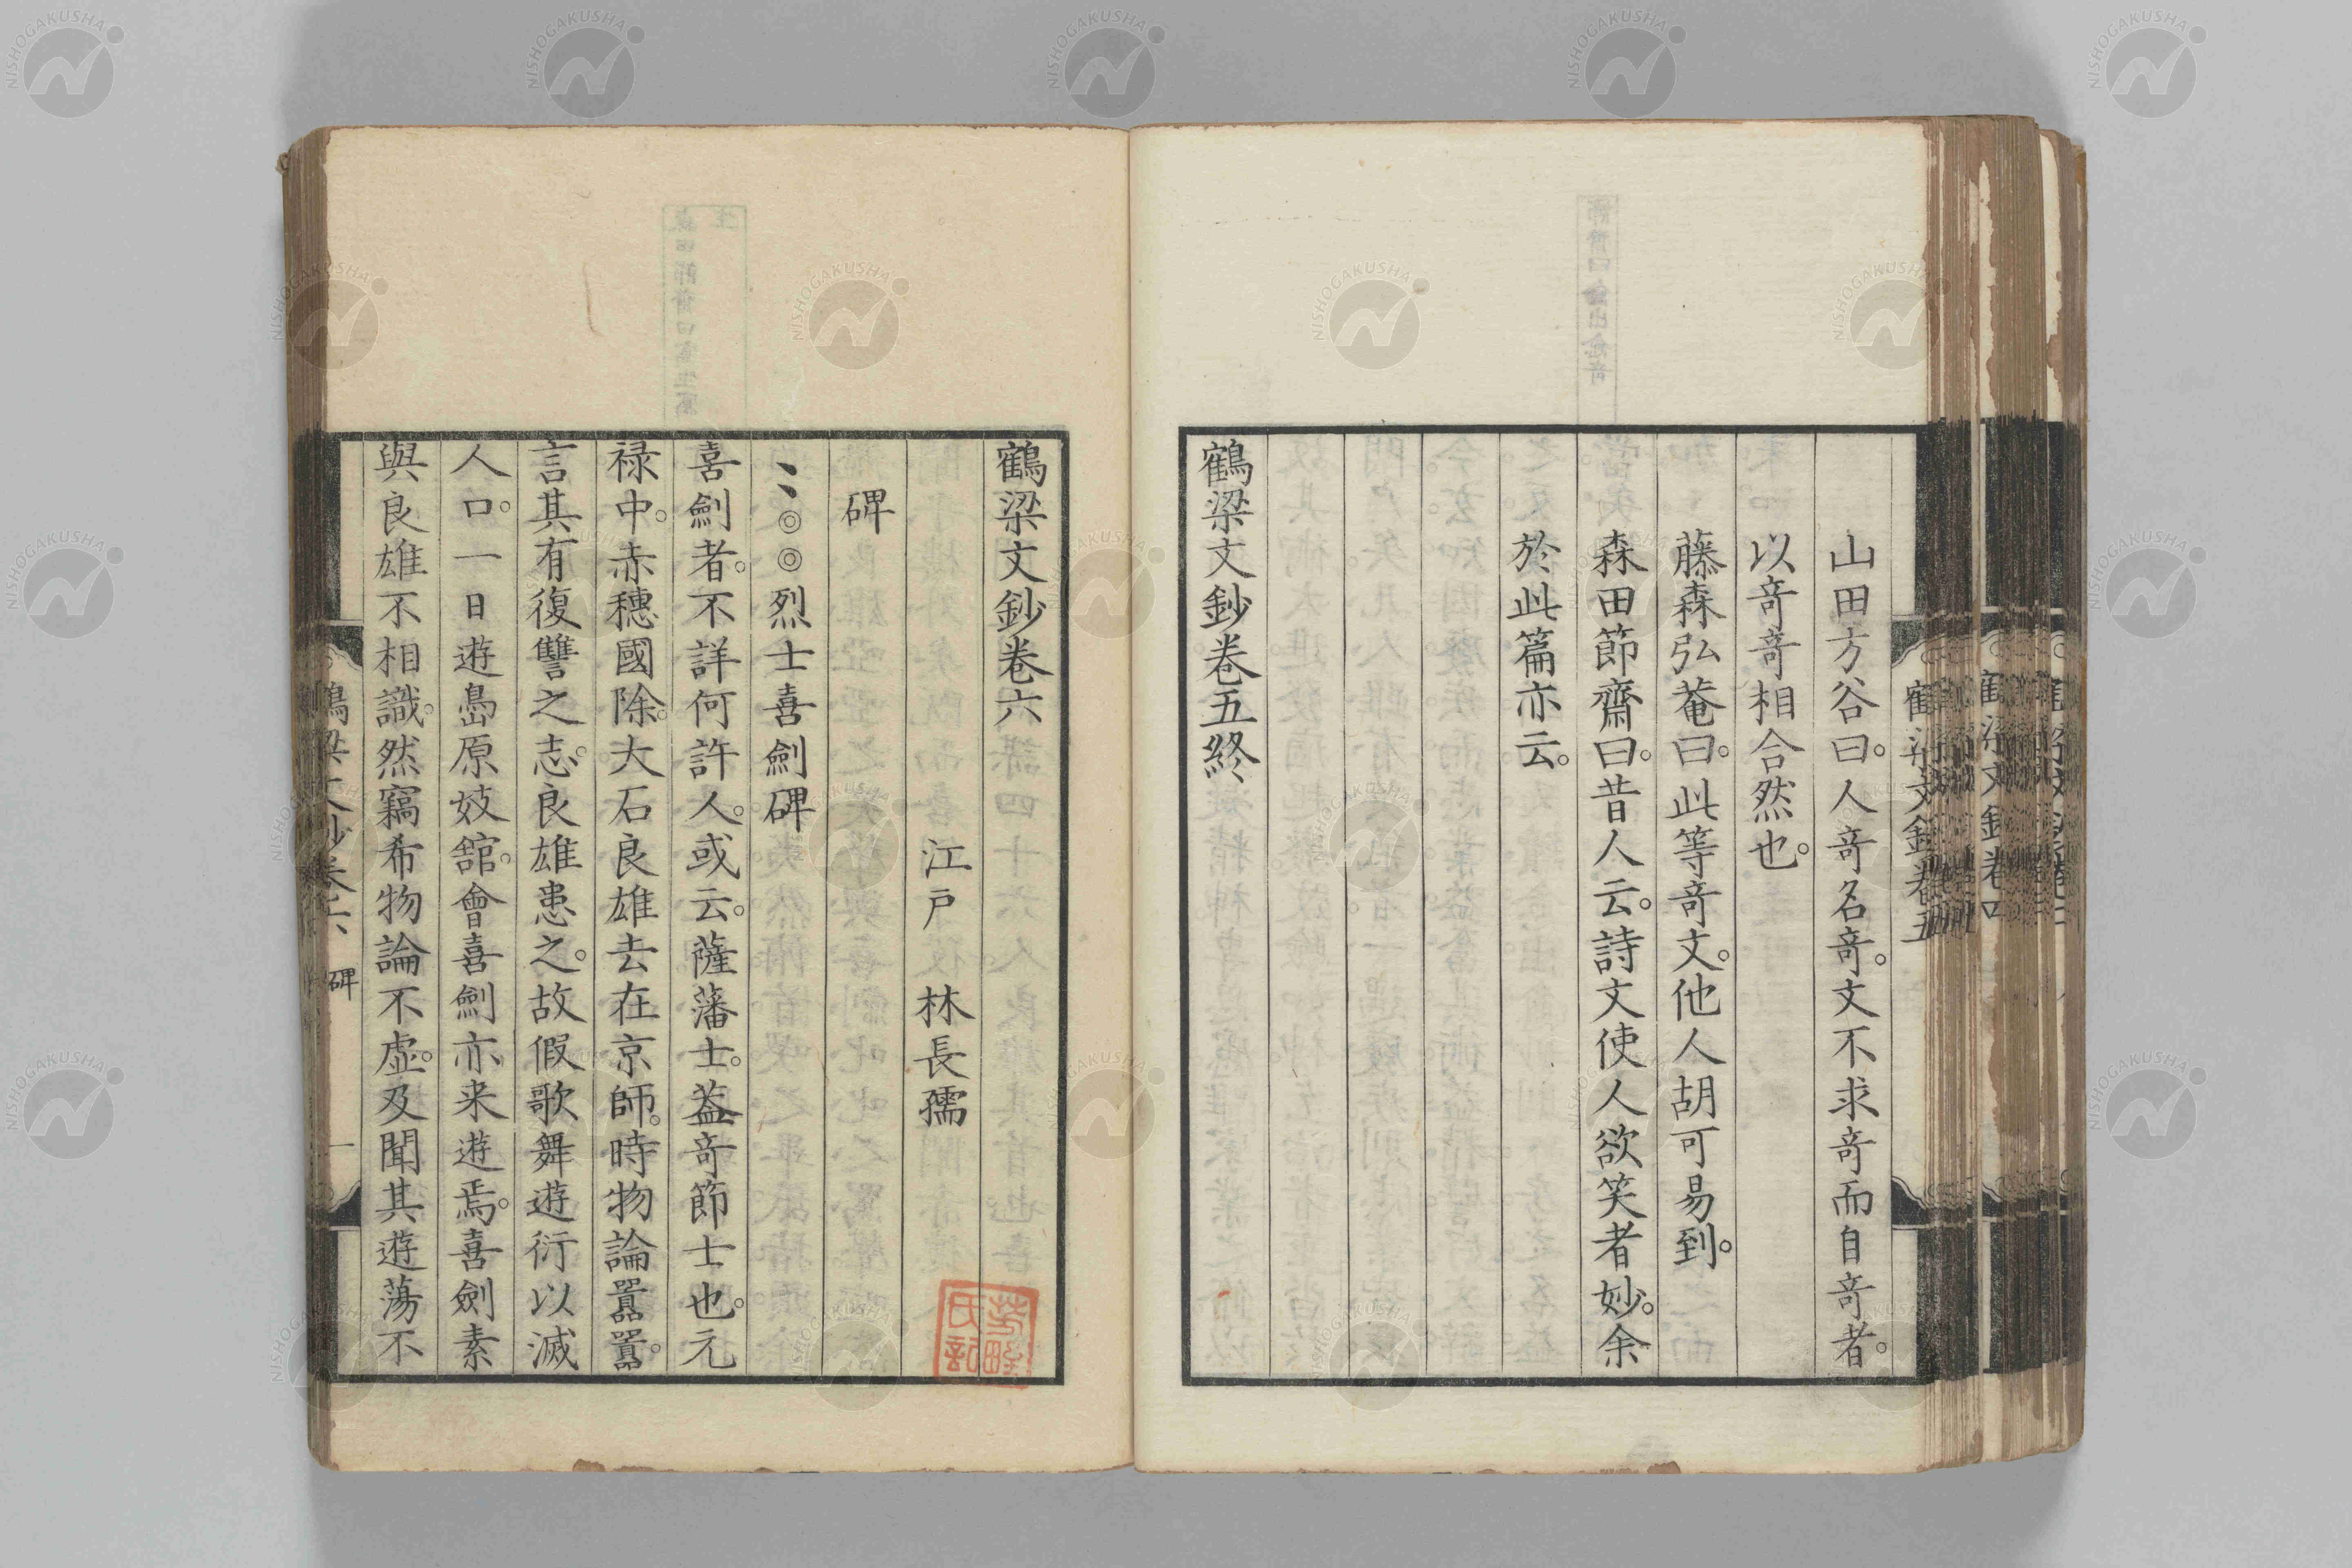 山田方谷曰。人奇名奇。文不求奇而自奇者。
以奇奇相合然也。
藤森弘菴曰。此等奇文。他人胡可易到。
森田節齋曰。昔人云。詩文使人欲笑者妙。余
於此篇亦云。
鶴梁文鈔卷五終
鶴梁文鈔卷六
江戸 林長孺
碑
、、◎◎烈士喜劍碑
喜劍者。不詳何許人。或云。薩藩士。葢奇節士也。元
禄中。赤穗國除。大石良雄去在京師。時物論囂囂。
言其有復讐之志。良雄患之。故假歌舞遊衍以滅
人口。一日遊島原妓舘。會喜劍亦来遊焉。喜劍素
與良雄不相識。然竊希物論不虛。及聞其遊蕩不
鶴梁文鈔卷六 碑 一
鶴梁文鈔卷五
NISHOGAKUSHA